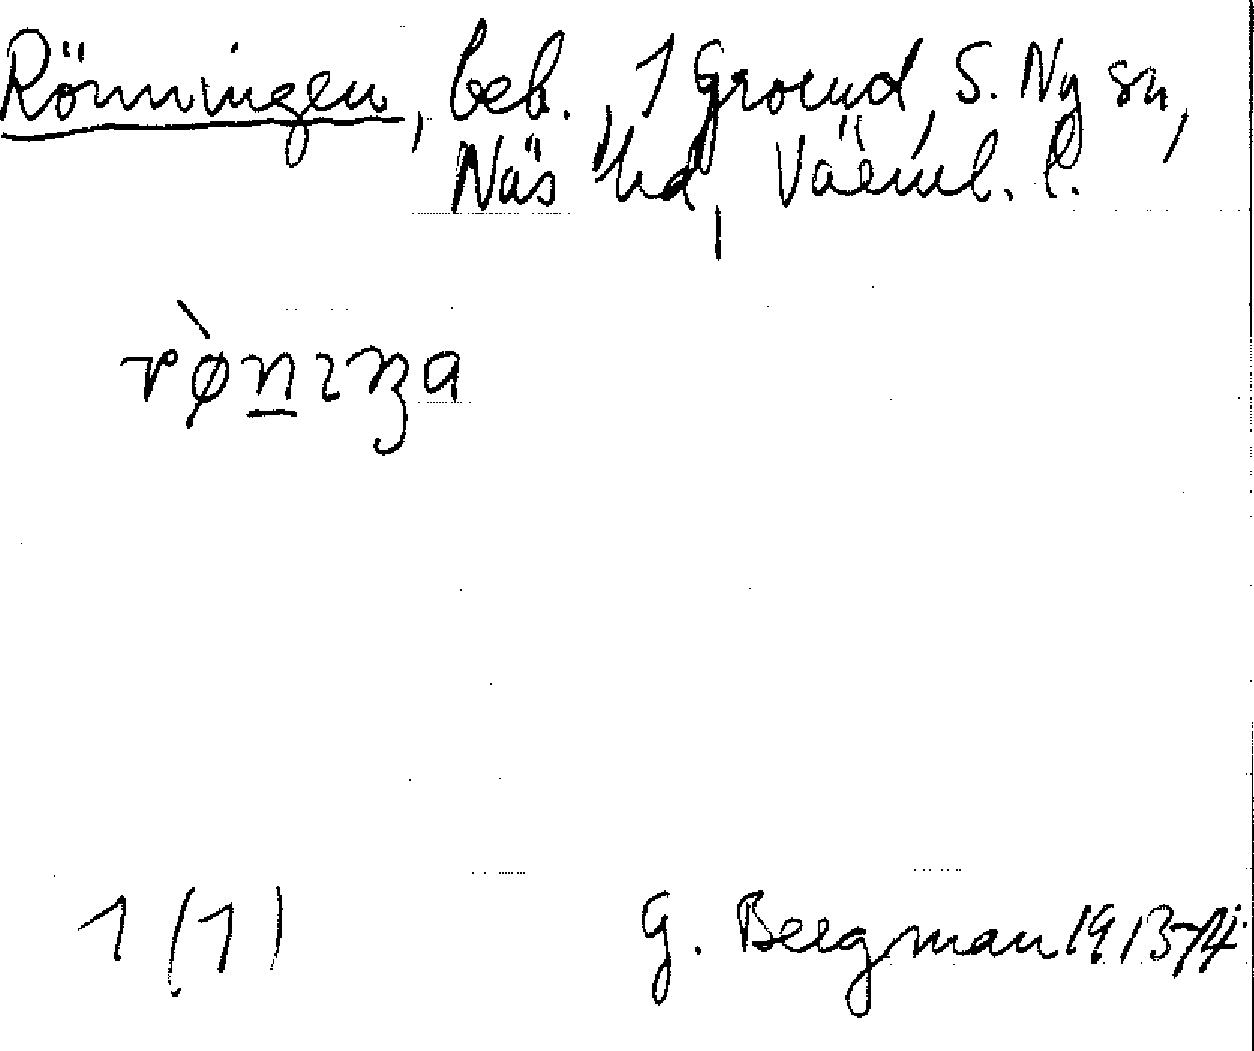 Rönningen, beb., 1 Ground, S. Ny sn,
Näs hd, Värml. l.
rø̀nıŋa
1 (1)
G. Bergman 1913-14.